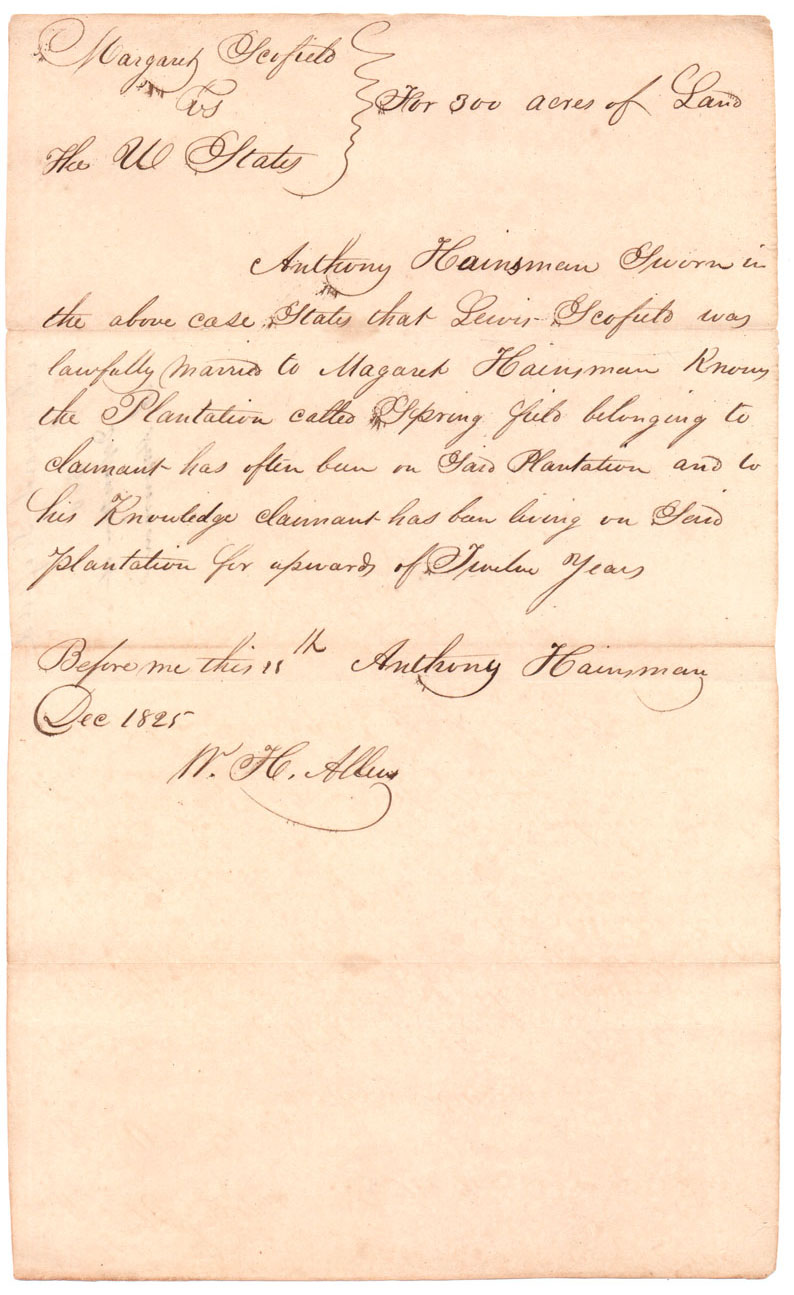 Margaret Scofield
vs
The U States
For 300 acres of Land
Anthony Hainsman Sworn in
the above case States that Lewis Scofield was
lawfully married to Magaret Hainsman Knows
the Plantation called Spring field belonging to
claimant has often been on Said Plantation and to
his Knowledge claimant has been living on Said
plantation for upwards of Twelve Years
Before me this 11th Anthony Hainsman
Dec 1825
W. H. Allen